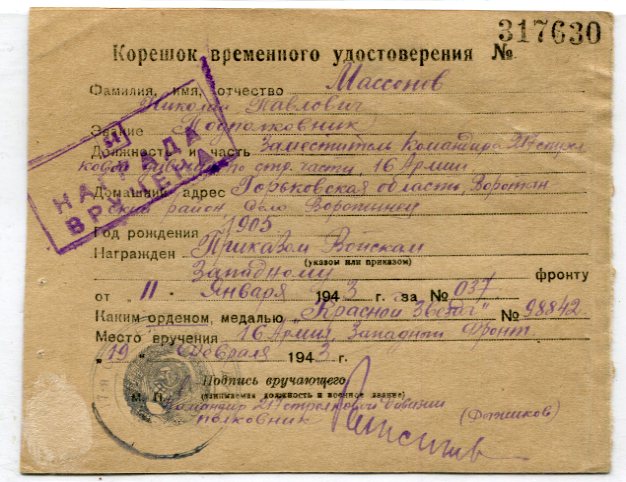 317630
Корешок временного удостоверения №
Фамилия, имя, отчество Массонов
Николай Павлович
Звание Подполковник
Должность и часть Заместитель Командира стрел
ковой дивизии по стр. части, 16 Армии
Домашний адрес Горьковская область, Воротын
ский район село Воротынец
Год рождения 1905
Награжден Приказом Войскам
(указом или приказом)
Западному фронту
от "11" Января 1943 г. за № 037
Каким орденом, медалью „Красной Звезды" № 98842.
Место вручения 16 Армия, Западный Фронт
"19" Февраля 1943 г.
Подпись вручающего
(занимаемая должность и военное звание)
М. П.
Командир стрелковой дивизии
полковник
НАГРАДА
ВРУЧЕНА